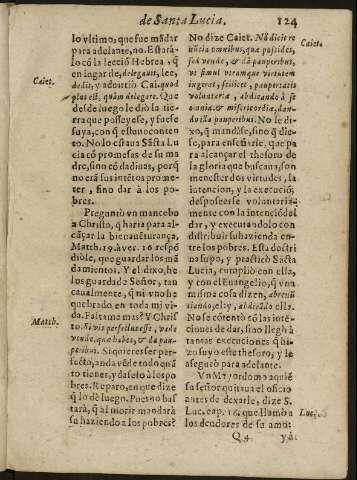 de Santa Lucia. 124
lo vltimo, que fue mãdar
para adelante, no. Estarà-
lo cõ la lecciõ Hebrea, q̃
en ingar de, delegauit, lee,
dedit, y aduirtio Cai. quod
plus est, quàm delegere. Que
desde luego le diò la tie-
rra que posseyesse, y fuesse
suya, con q̃ estuuo conten
to. No lo estaua Sãta Lu
cia cõ promesas de su ma
dre, sino cõ dadiuas, porq̃
no erã sus intẽtos prome-
ter, sino dar à los po-
bres.
Preguntò vn mancebo
a Christo, q̃ haria para al-
cãçar la bienauẽturança,
Matth. 19. à ver. 16 respõ
diòle, que guardar los mã
damientos. Y el dixo, he
los guardado Señor, tan
caualmente, q̃ ni vno he
quebrado en toda mi vi-
da. Faltame mas? Y Chris
to. Si vis perfectus esse, vade
vende, que habes, & da pau-
peribus. Si quieres ser per-
fecto, anda vẽde todo quã
to tienes, y daselo à los po
bres. Reparo, en que dize
q̃ lo dè luego. Pues no bas
tarà, q̃ al morir mandarà
su haziendo a los pobres?
Caiet.
Matth.
No dize Caiet. Nõ dicit re
nũcia omnibus, que possides,
sed vende, & dà pauperibus,
vt simul vtramque virtutem
ingerat, scilicet, paupertatis
voluntariæ, abdicando à se
omnia, & misericordiæ, dan-
do illa pauperibus. No le di-
xo, q̃ mandasse, sino q̃ dies-
se, para enseñarle, que pa
ra alcançar el thesoro de
la gloria que buscaua, son
menester dos virtudes, la
intencion, y la execuciõ,
desposeerse voluntaria-
mente con la intencioõ del
dar, y executandolo con
distribuir su hazienda en-
tre los pobres. Esta doctri
na supo, y practicò Sãcta
Lucia, cumpliò con ella,
y con el Euangelio, q̃ vna
misma cosa dizen, abrenũ
tiando, el, y, abdicãdo ella
No se cõtentò cõ las inte-
ciones de dar, sino llegò à
tantas execuciones q̃ hi-
zo suyo este thesoro, y le
assegurò para adelante.
Vn Mayordomo a quiẽ
su señor quitaua el oficio
antes de dexarle, dize S.
Luc. cap. 16. que llamò a
los deudores de su amo:
Caiet.
Luc. 16
Q 4 y à